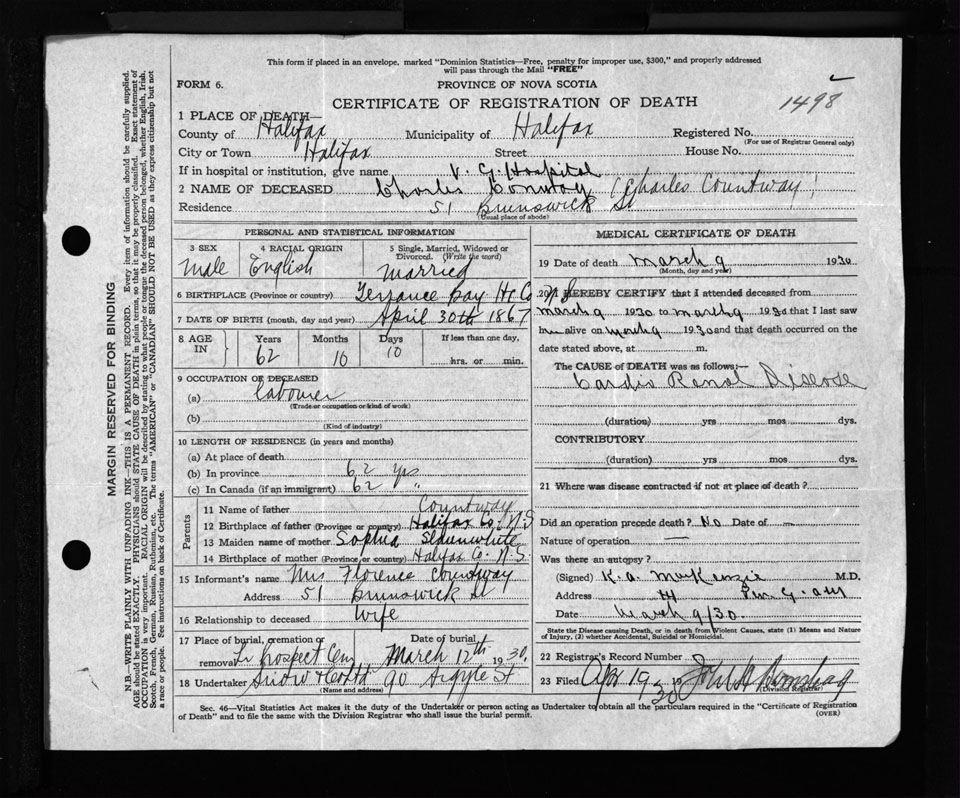 This form if placed in an envelope, marked "Dominion Statistics—Free, penalty for improper use, $300," and properly addressed
will pass through the Mail "FREE"
FORM 6.
PROVINCE OF NOVA SCOTIA
CERTIFICATE OF REGISTRATION OF DEATH
1498
1 PLACE OF DEATH—
County of Halifax Municipality of Halifax Registered No.
(For use of Registrar General only)
City or Town Halifax Street House No.
If in hospital or institution, give name V. G. Hospital
2 NAME OF DECEASED Charles Conway (Charles Countway)
Residence 51 Brunswick St
(Usual place of abode)
PERSONAL AND STATISTICAL INFORMATION
3 SEX 4 RACIAL ORIGIN 5 Single, Married, Widowed or Divorced. (Write the word)
Male English Married
6 BIRTHPLACE (Province or country) Terrance Bay Hx Co N S
7 DATE OF BIRTH (month, day and year) April 30th 1867
8 AGE IN Years Months Days If less than one day,
62 10 10 hrs. or min.
9 OCCUPATION OF DECEASED
(a) Labourer
(Trade or occupation or kind of work)
(b)
(Kind of industry)
10 LENGTH OF RESIDENCE (in years and months)
(a) At place of death
(b) In province 62 yrs
(c) In Canada (if an immigrant) 62 "
Parents
11 Name of father Countway
12 Birthplace of father (Province or country) Halifax Co. N S
13 Maiden name of mother Sophia Slaunwhite
14 Birthplace of mother (Province or country) Halifax Co. N. S.
15 Informant's name Mrs Florence Countway
Address 51 Brunswick St
16 Relationship to deceased Wife
17 Place of burial, cremation or removal Prospect Cem Date of burial March 12th 1930.
18 Undertaker Snow & Co Ltd 90 Argyle St
(Name and address)
MEDICAL CERTIFICATE OF DEATH
19 Date of death March 9 1930
(Month, day and year)
20 I HEREBY CERTIFY that I attended deceased from
March 9 1930 to March 9 1930 that I last saw
him alive on March 9 1930 and that death occurred on
date stated above, at m.
The CAUSE OF DEATH was as follows:—
Cardio Renal Disease
(duration) yrs mos dys.
CONTRIBUTORY
(duration) yrs mos dys.
21 Where was disease contracted if not at place of death?
Did an operation precede death? No Date of —
Nature of operation —
Was there an autopsy?
(Signed) K. A. MacKenzie M.D.
Address
Date March 9/30.
State the Disease causing Death, or in death from Violent Causes, state (1) Means and Nature of Injury, (2) whether Accidental, Suicidal or Homicidal.
22 Registrar's Record Number
23 Filed Apr 19 1930
(Division Registrar)
Sec. 46—Vital Statistics Act makes it the duty of the Undertaker or person acting as Undertaker to obtain all the particulars required in the "Certificate of Registration
of Death" and to file the same with the Division Registrar who shall issue the burial permit. (OVER)
MARGIN RESERVED FOR BINDING
N.B.—WRITE PLAINLY WITH UNFADING INK—THIS IS A PERMANENT RECORD. Every item of information should be carefully supplied.
AGE should be stated EXACTLY. PHYSICIANS should STATE CAUSE OF DEATH in plain terms, so that it may be properly classified. Exact statement of
OCCUPATION is very important. RACIAL ORIGIN will be described by stating to what people or tongue the deceased person belonged, whether English, Irish,
Scotch, French, German, Russian, Ruthenian, etc. The terms "AMERICAN" or "CANADIAN" SHOULD NOT BE USED as they express citizenship but not
a race or people. See instructions on back of Certificate.